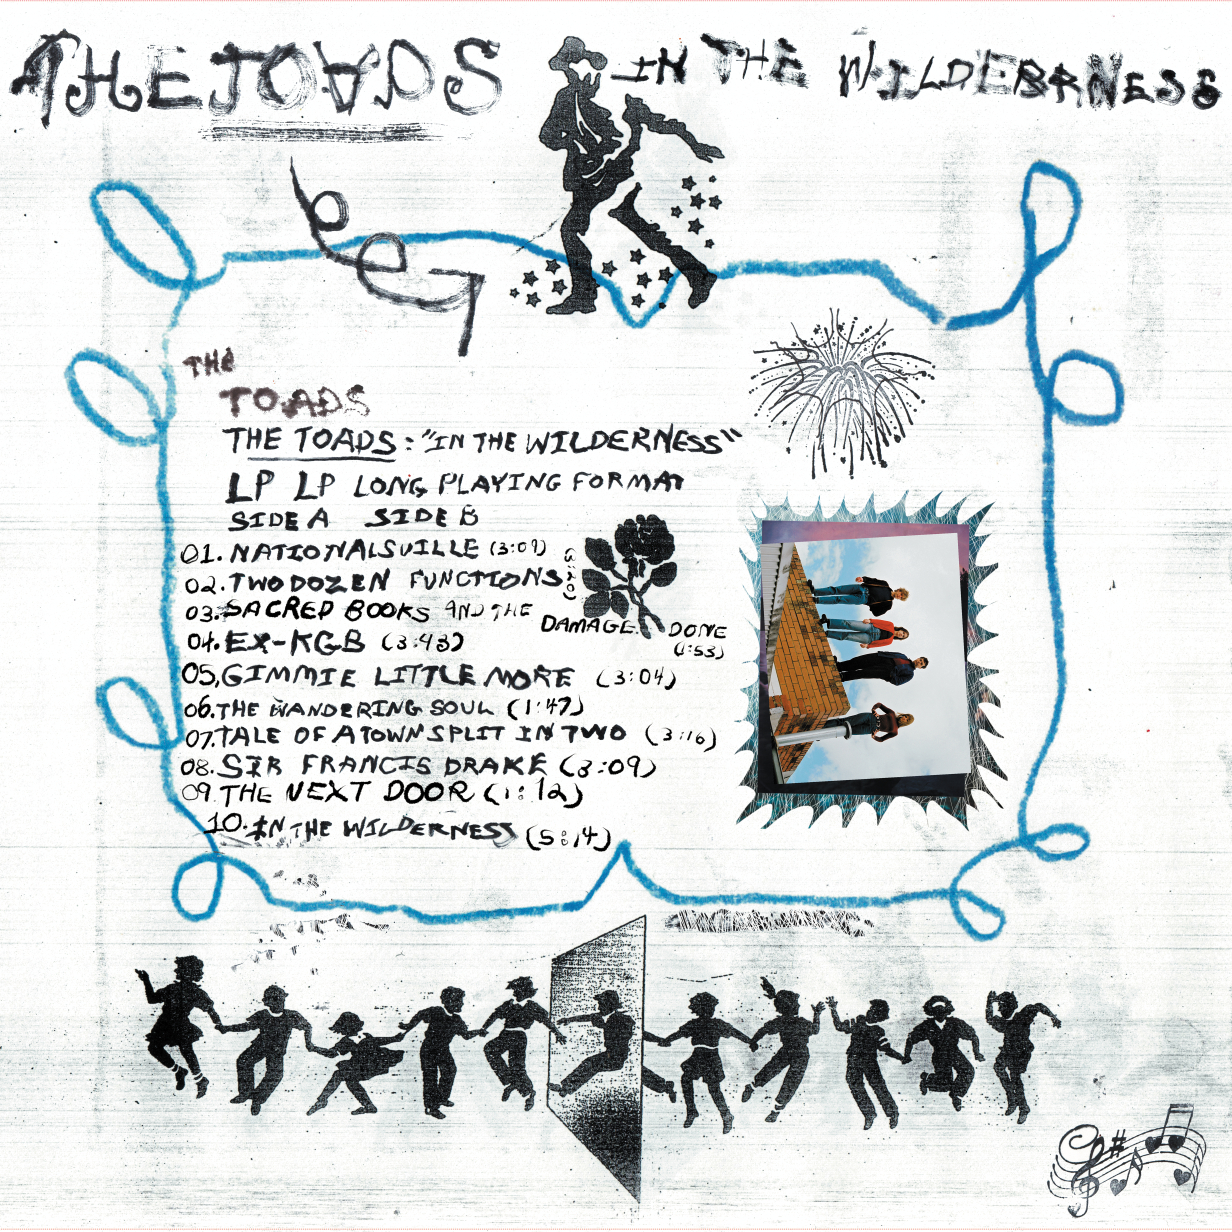 THE TOADS IN THE WILDERBRNESS
THE
TOADS
THE TOADS: "IN THE WILDERNESS"
LP LP LONG PLAYING FORMAT
SIDE A SIDE B
01. NATIONALSVILLE (3:09)
02. TWO DOZEN FUNCTIONS
03. SACRED BOOKS AND THE DAMAGE DONE (1:53)
04. EX-KGB (3:43)
05. GIMMIE LITTLE MORE (3:04)
06. THE WANDERING SOUL (1:47)
07. TALE OF A TOWN SPLIT IN TWO (3:16)
08. SIR FRANCIS DRAKE (3:09)
09. THE NEXT DOOR (1:12)
10. IN THE WILDERNESS (5:14)